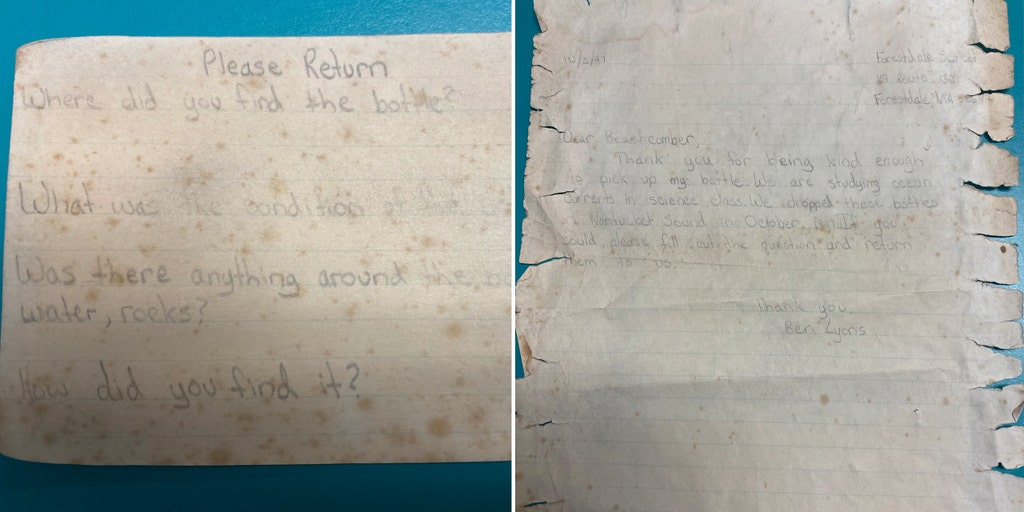 Please Return
Where did you find the bottle?
What was the condition of the
Was there anything around the
water, rocks?
How did you find it?
Forestdale
151 Route 130
Forestdale, MA
Dear Beachcomber,
Thank you for being kind enough
to pick up my bottle. We are studying ocean
currents in science class. We dropped these bottles
in Nantucket Sound in October
could, please fill out the question and return
them to us.
Thank you,
Ben Lyons